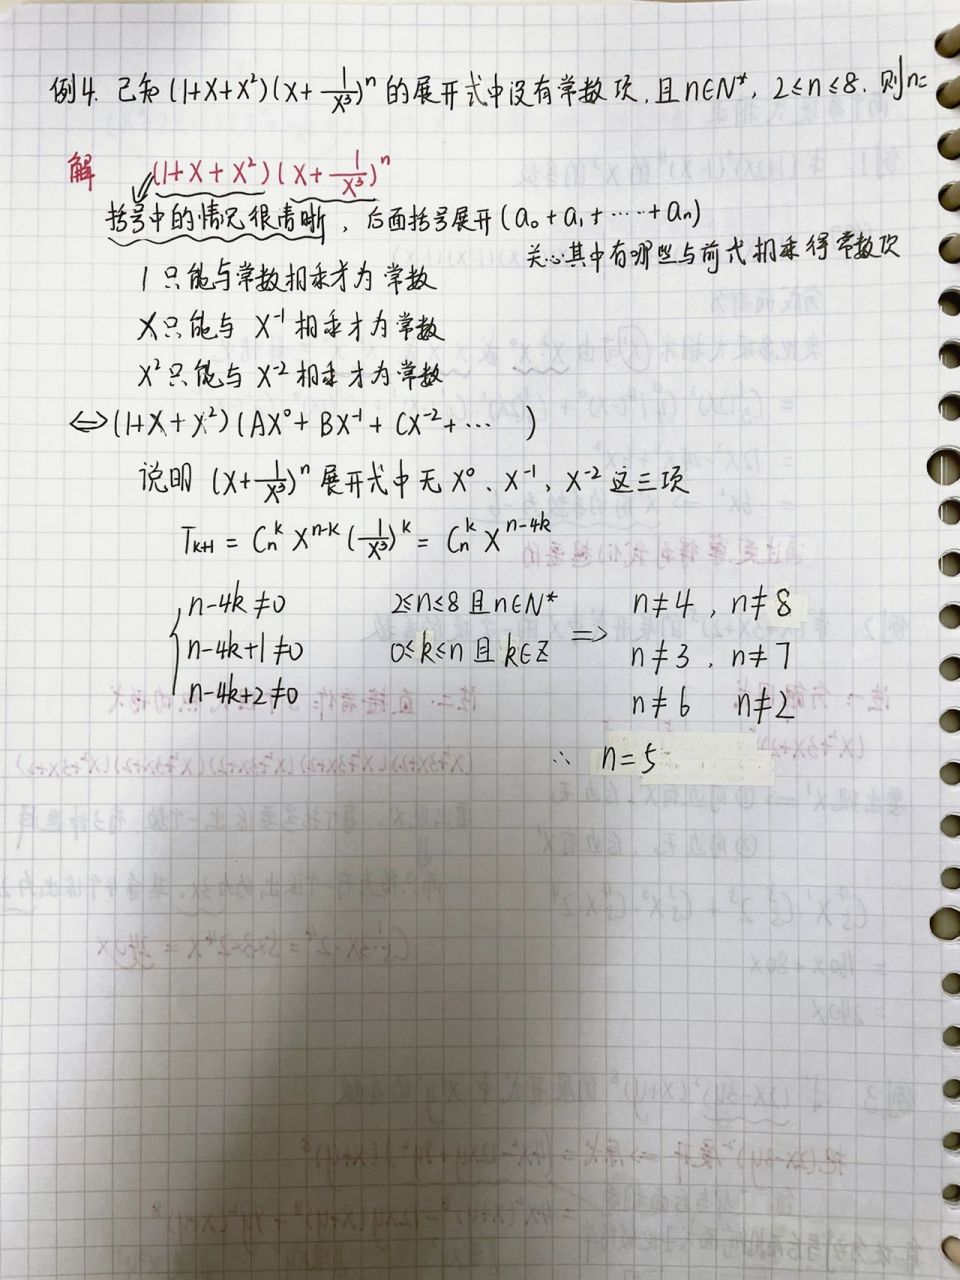 例4. 已知 (1+X+X²)(X+1/X³)ⁿ 的展开式中没有常数项,且n∈N*, 2≤n≤8. 则n=
解 (1+X+X²)(X+1/X³)ⁿ
括号中的情况很清晰,后面括号展开(a₀+a₁+……+aₙ)
关心其中有哪些与前式相乘得常数项
1只能与常数相乘才为常数
X只能与 X⁻¹ 相乘才为常数
X²只能与 X⁻² 相乘才为常数
⇔(1+X+X²)(AX⁰+BX⁻¹+CX⁻²+… )
说明 (X+1/X³)ⁿ 展开式中无 X⁰、X⁻¹、X⁻² 这三项
Tₖ₊₁ = Cₙᵏ Xⁿ⁻ᵏ (1/X³)ᵏ = Cₙᵏ Xⁿ⁻⁴ᵏ
n-4k≠0 2≤n≤8且n∈N* n≠4, n≠8
n-4k+1≠0 0≤k≤n且k∈Z ⇒ n≠3, n≠7
n-4k+2≠0 n≠6 n≠2
∴ n=5